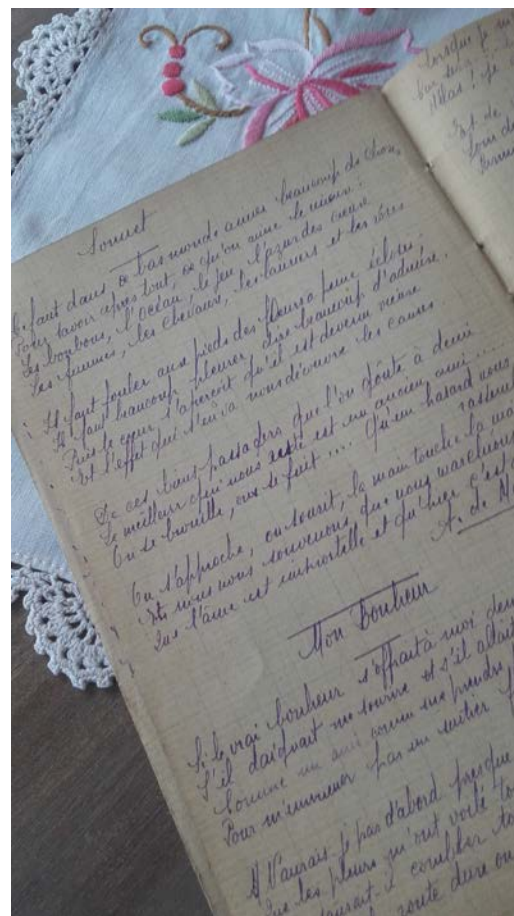 Lorsque je
Hélas ! je
Et de
Loin de
Sonnet
Il faut dans ce bas monde aimer beaucoup de choses,
Pour savoir après tout, ce qu'on aime le mieux :
Les bonbons, l'océan, le jeu, l'azur des cieux
Les femmes, les chevaux, les lauriers et les roses
Il faut fouler aux pieds des fleurs à peine écloses,
Il faut beaucoup pleurer, dire beaucoup d'adieux.
Puis le cœur s'aperçoit qu'il est devenu vieux
Et l'effet qui s'en va nous découvre les causes
De ces biens passagers que l'on goûte à demi
Le meilleur qui nous reste est un ancien ami ....
On se brouille, on se fuit .... Qu'un hasard nous
rassemble
On s'approche, on sourit, la main touche la ma
Et nous nous souvenons que nous marchions
Que l'âme est immortelle et qu'hier c'est
A. de M
Mon Bonheur
Si le vrai bonheur s'offrait à moi
S'il daignait me sourire et s'il allait
Comme un ami comme me prendre
Pour m'emmener par un sentier
N'aurais-je pas d'abord presque
Que les pleurs m'ont voilé
combler
route dure ou